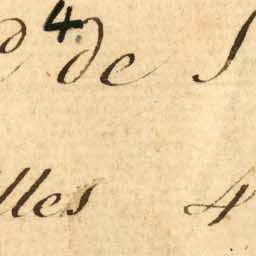 4
de
lles 4